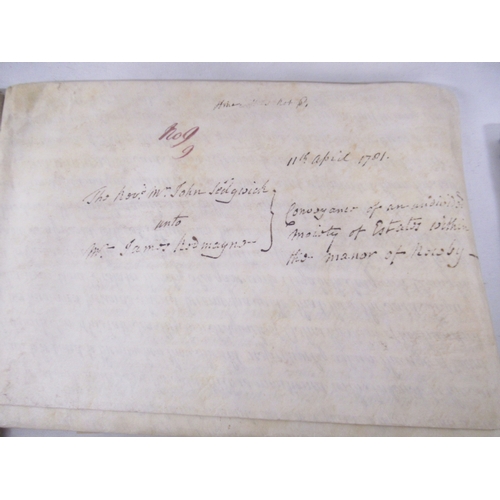 No 9
9
11th April 1781.
The Revd. Mr. John Sedgwick
unto
Mr. James Redmayne
Conveyance of an undivided
Moiety of Estates within
the Manor of